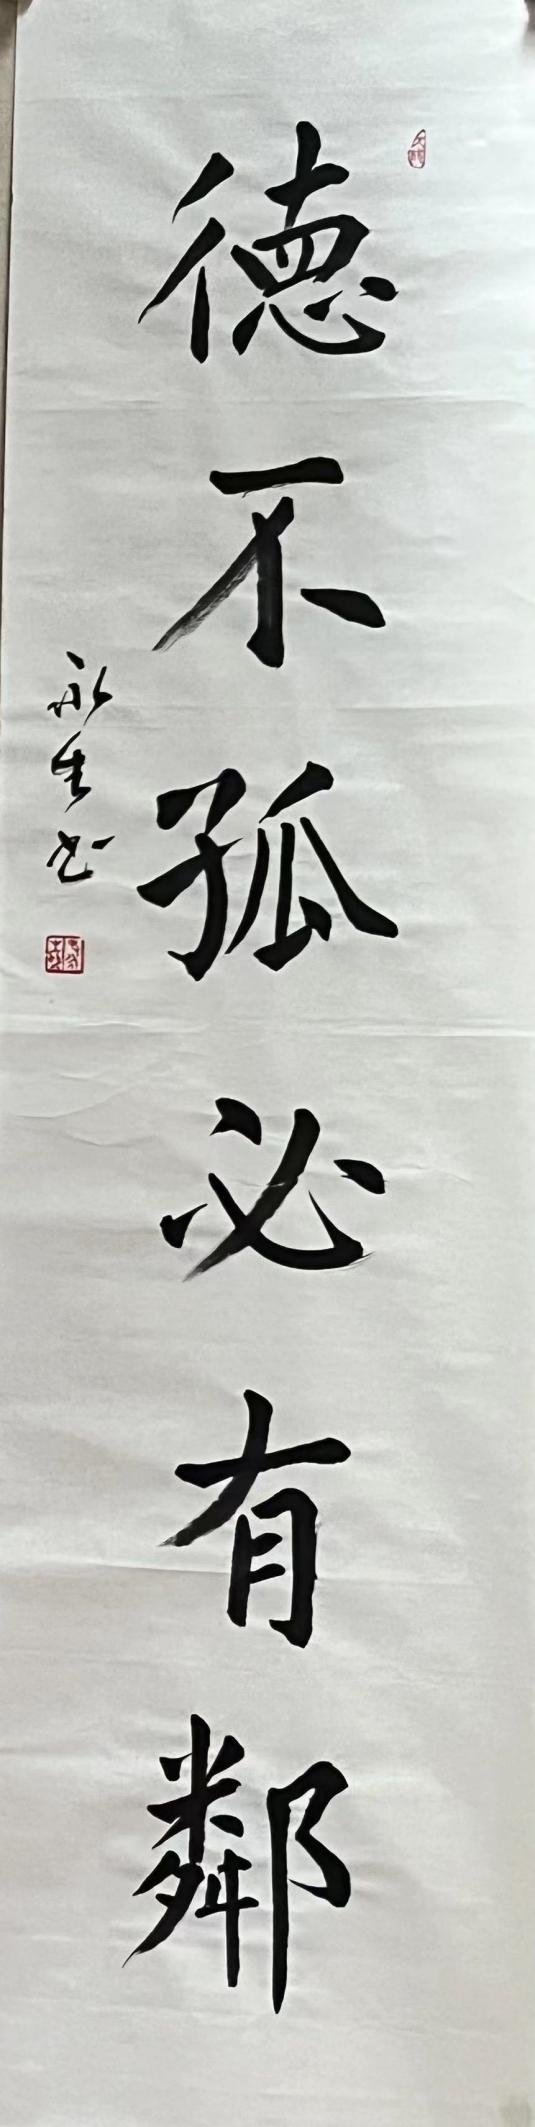 德不孤必有鄰
永生书